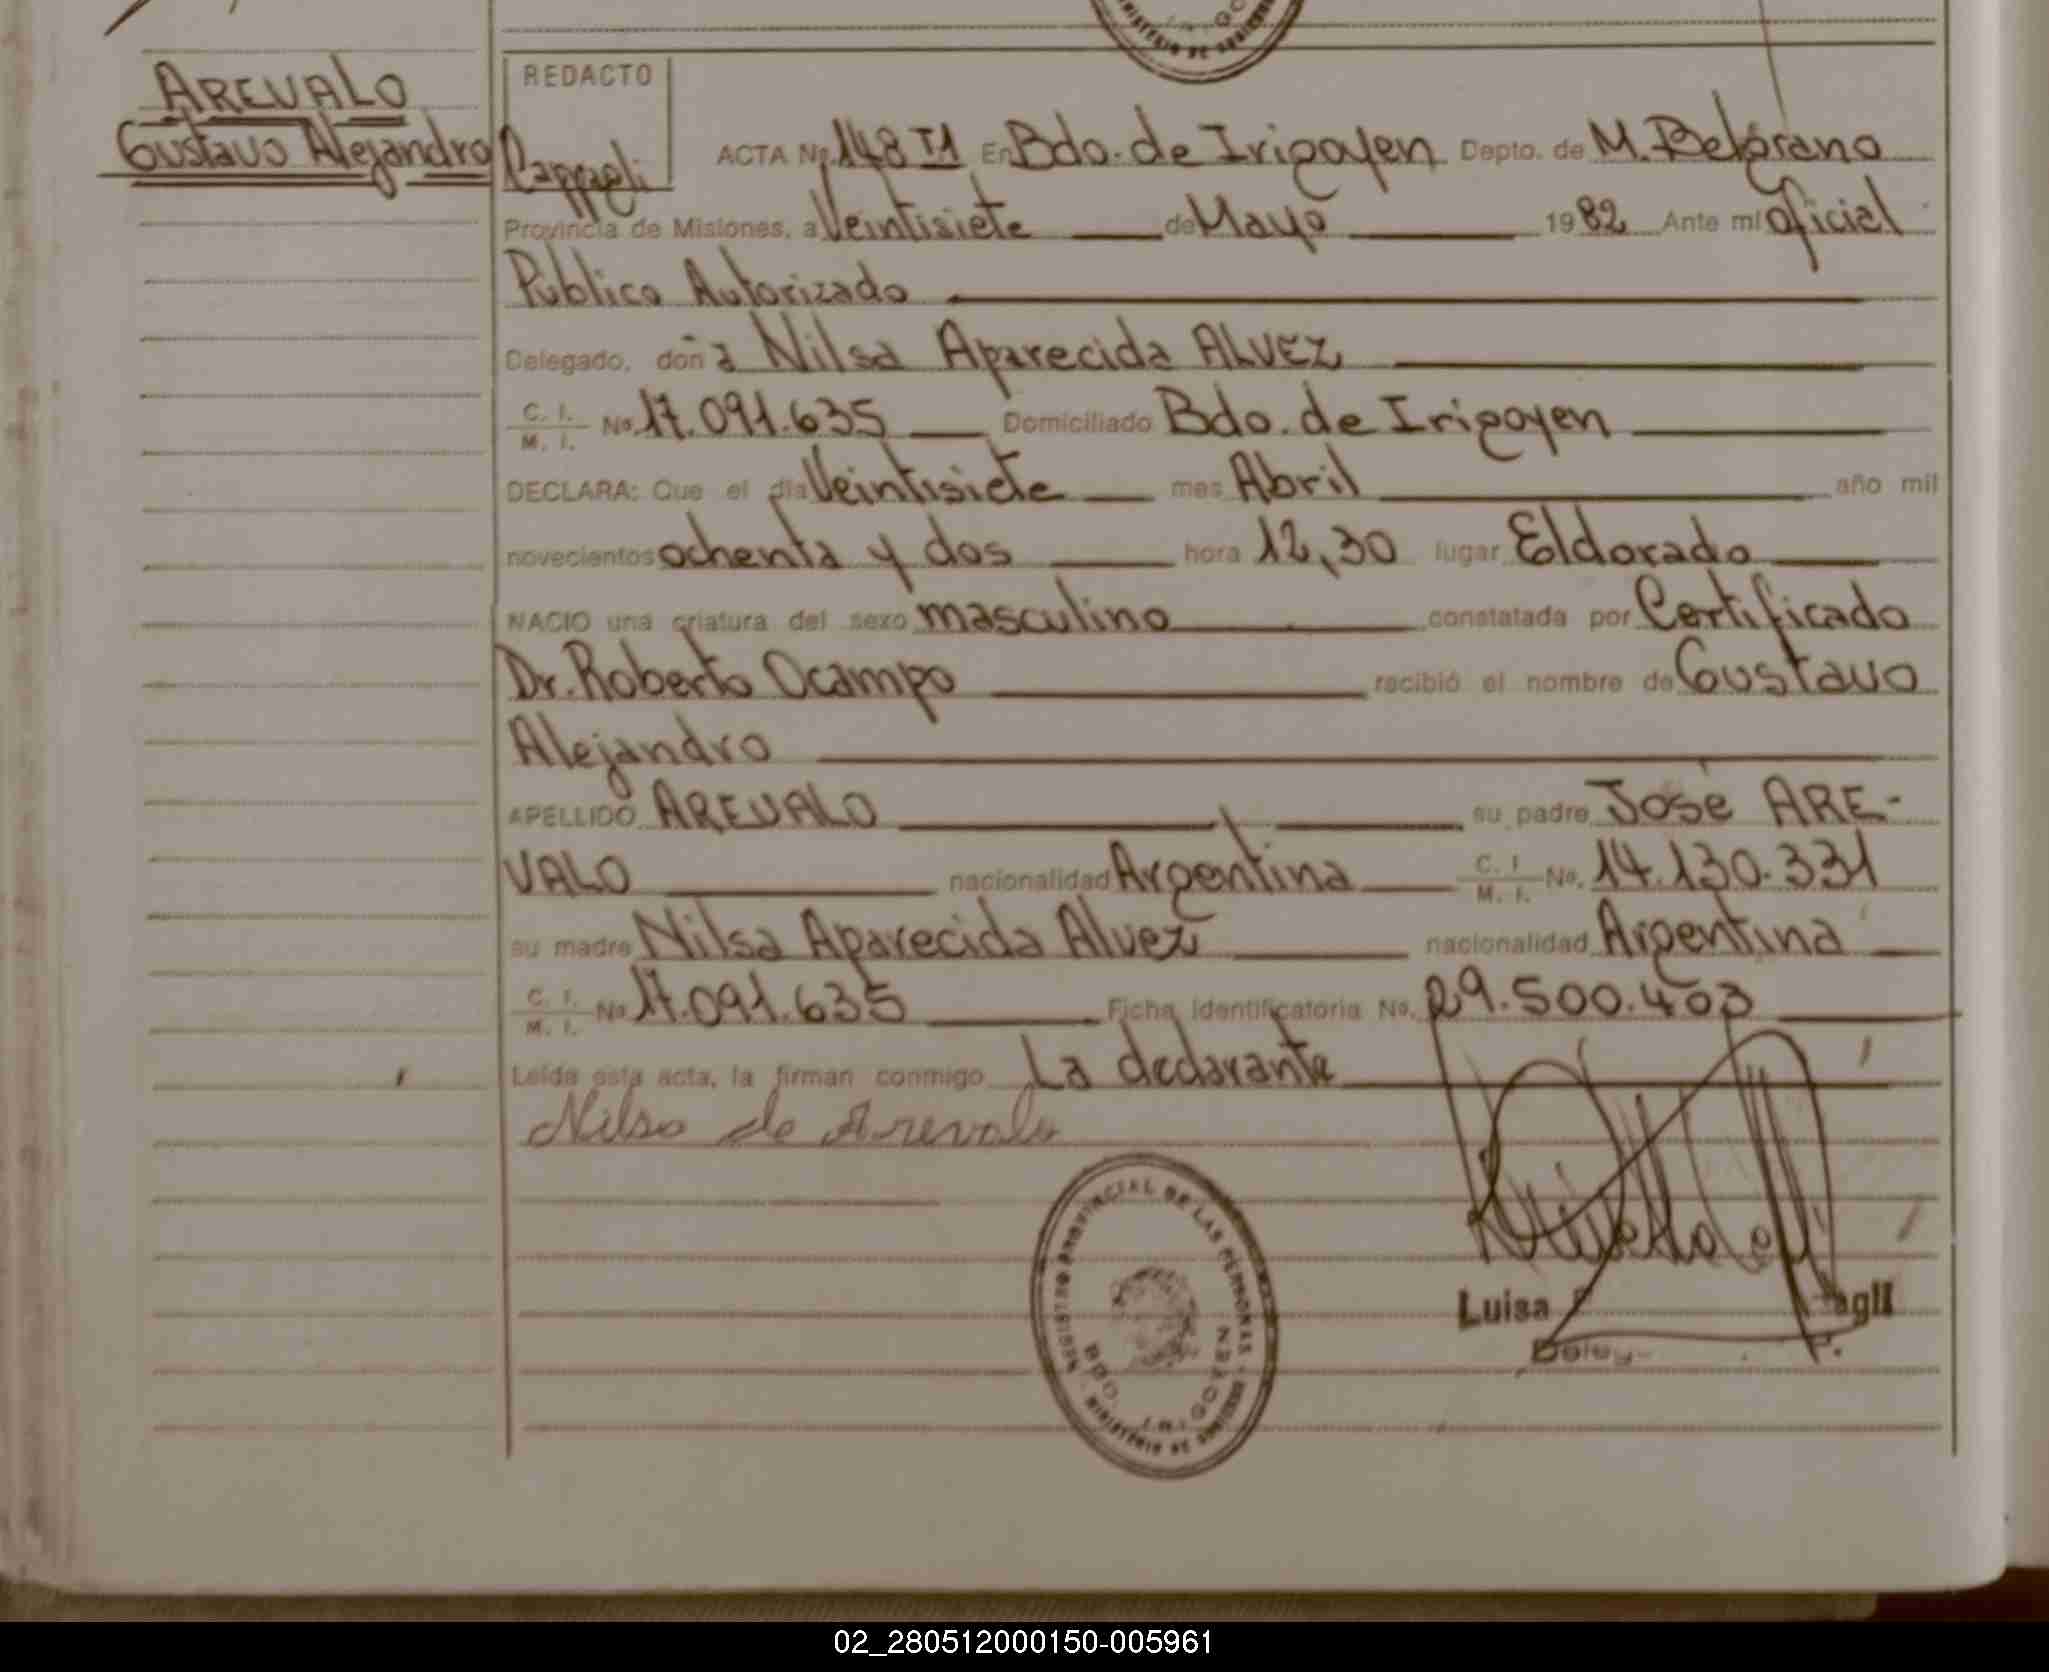 AREVALO
Gustavo Alejandro
REDACTO
Cappagli
ACTA No. 148 T1 En Bdo. de Irigoyen Depto. de M. Belgrano
Provincia de Misiones, a Veintisiete de Mayo 1982 Ante mi oficial
Público Autorizado
Delegado, don a Nilsa Aparecida ALVEZ
C. I. M. I. No. 17.091.635 Domiciliado Bdo. de Irigoyen
DECLARA: Que el día Veintisiete mes Abril año mil
novecientos ochenta y dos hora 12,30 lugar Eldorado
NACIO una criatura del sexo masculino constatada por Certificado
Dr. Roberto Ocampo recibió el nombre de Gustavo
Alejandro
APELLIDO AREVALO su padre José ARE-
VALO nacionalidad Argentina C. I. M. I. No. 14.130.331
su madre Nilsa Aparecida Alvez nacionalidad Argentina
C. I. M. I. No. 17.091.635 Ficha Identificatoria No. 29.500.403
Leída esta acta, la firman conmigo La declarante
Nilsa de Arevalo
REGISTRO PROVINCIAL DE LAS PERSONAS
BDO. IRIGOYEN
MINISTERIO DE GOBIERNO
Luisa
02_280512000150-005961